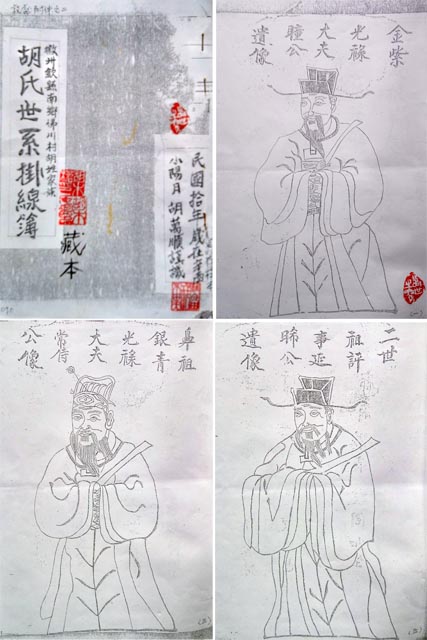 民國拾年歲在辛酉
小陽月 胡萬順謹識
徽州歙縣南鄉
村胡姓家族
胡氏世系掛線簿
藏本
金紫
光祿
大夫
瞳公
遺像
鼻祖
銀青
光祿
大夫
常侍
公像
二世
祖評
事延
晞公
遺像